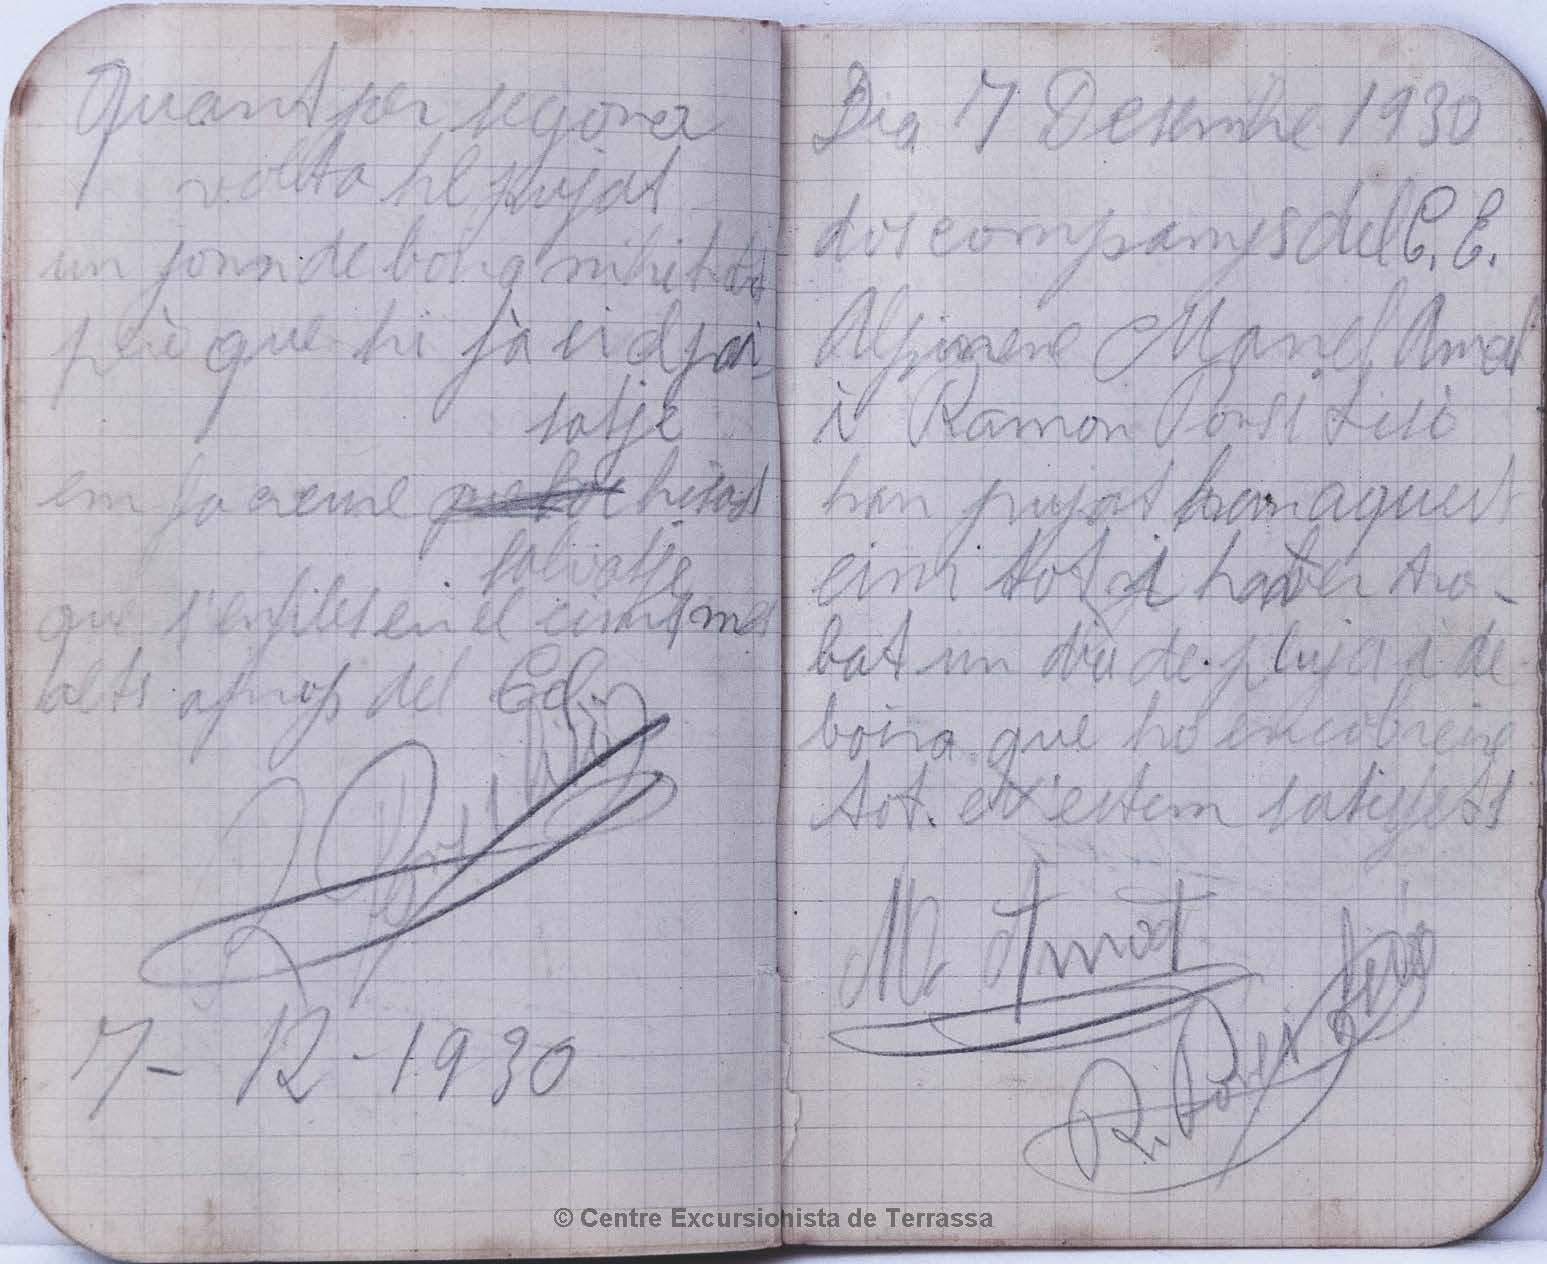 Quant per segona
volta he pujat
un jorn de boira
però que hi fà
satje
em fa creure
salvatje
que s'enfiles en el cims mes
alts aprop del Cel.
7-12-1930
Dia 7 Desembre 1930
dos companys del C. E.
Manel Amat
i Ramon Pons i Sisó
han pujat han aquest
cim tot i haver tro-
bat un dia de pluja i de
boira que ho encobreix
tot. estem satisfets
M. Amat
R. Pons Sisó
© Centre Excursionista de Terrassa